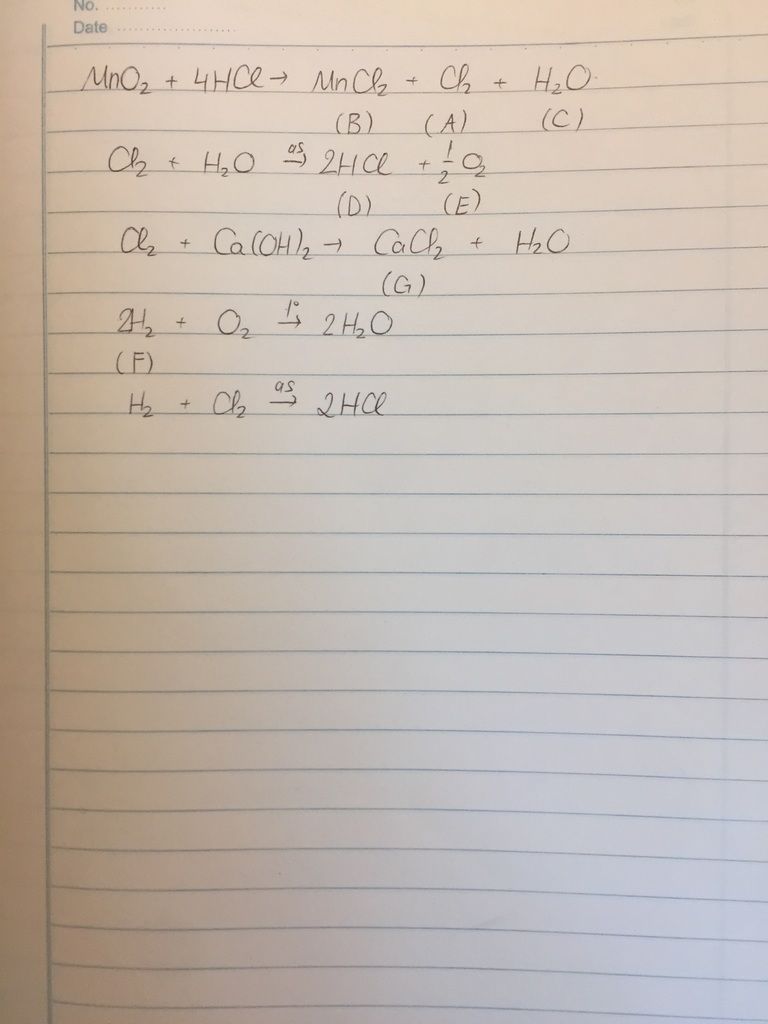 No. ............
Date ........................
MnO₂ + 4HCl → MnCl₂ + Cl₂ + H₂O.
(B) (A) (C)
Cl₂ + H₂O →^{as} 2HCl + 1/2 O₂
(D) (E)
Cl₂ + Ca(OH)₂ → CaCl₂ + H₂O
(G)
2H₂ + O₂ →^{t°} 2H₂O
(F)
H₂ + Cl₂ →^{as} 2HCl